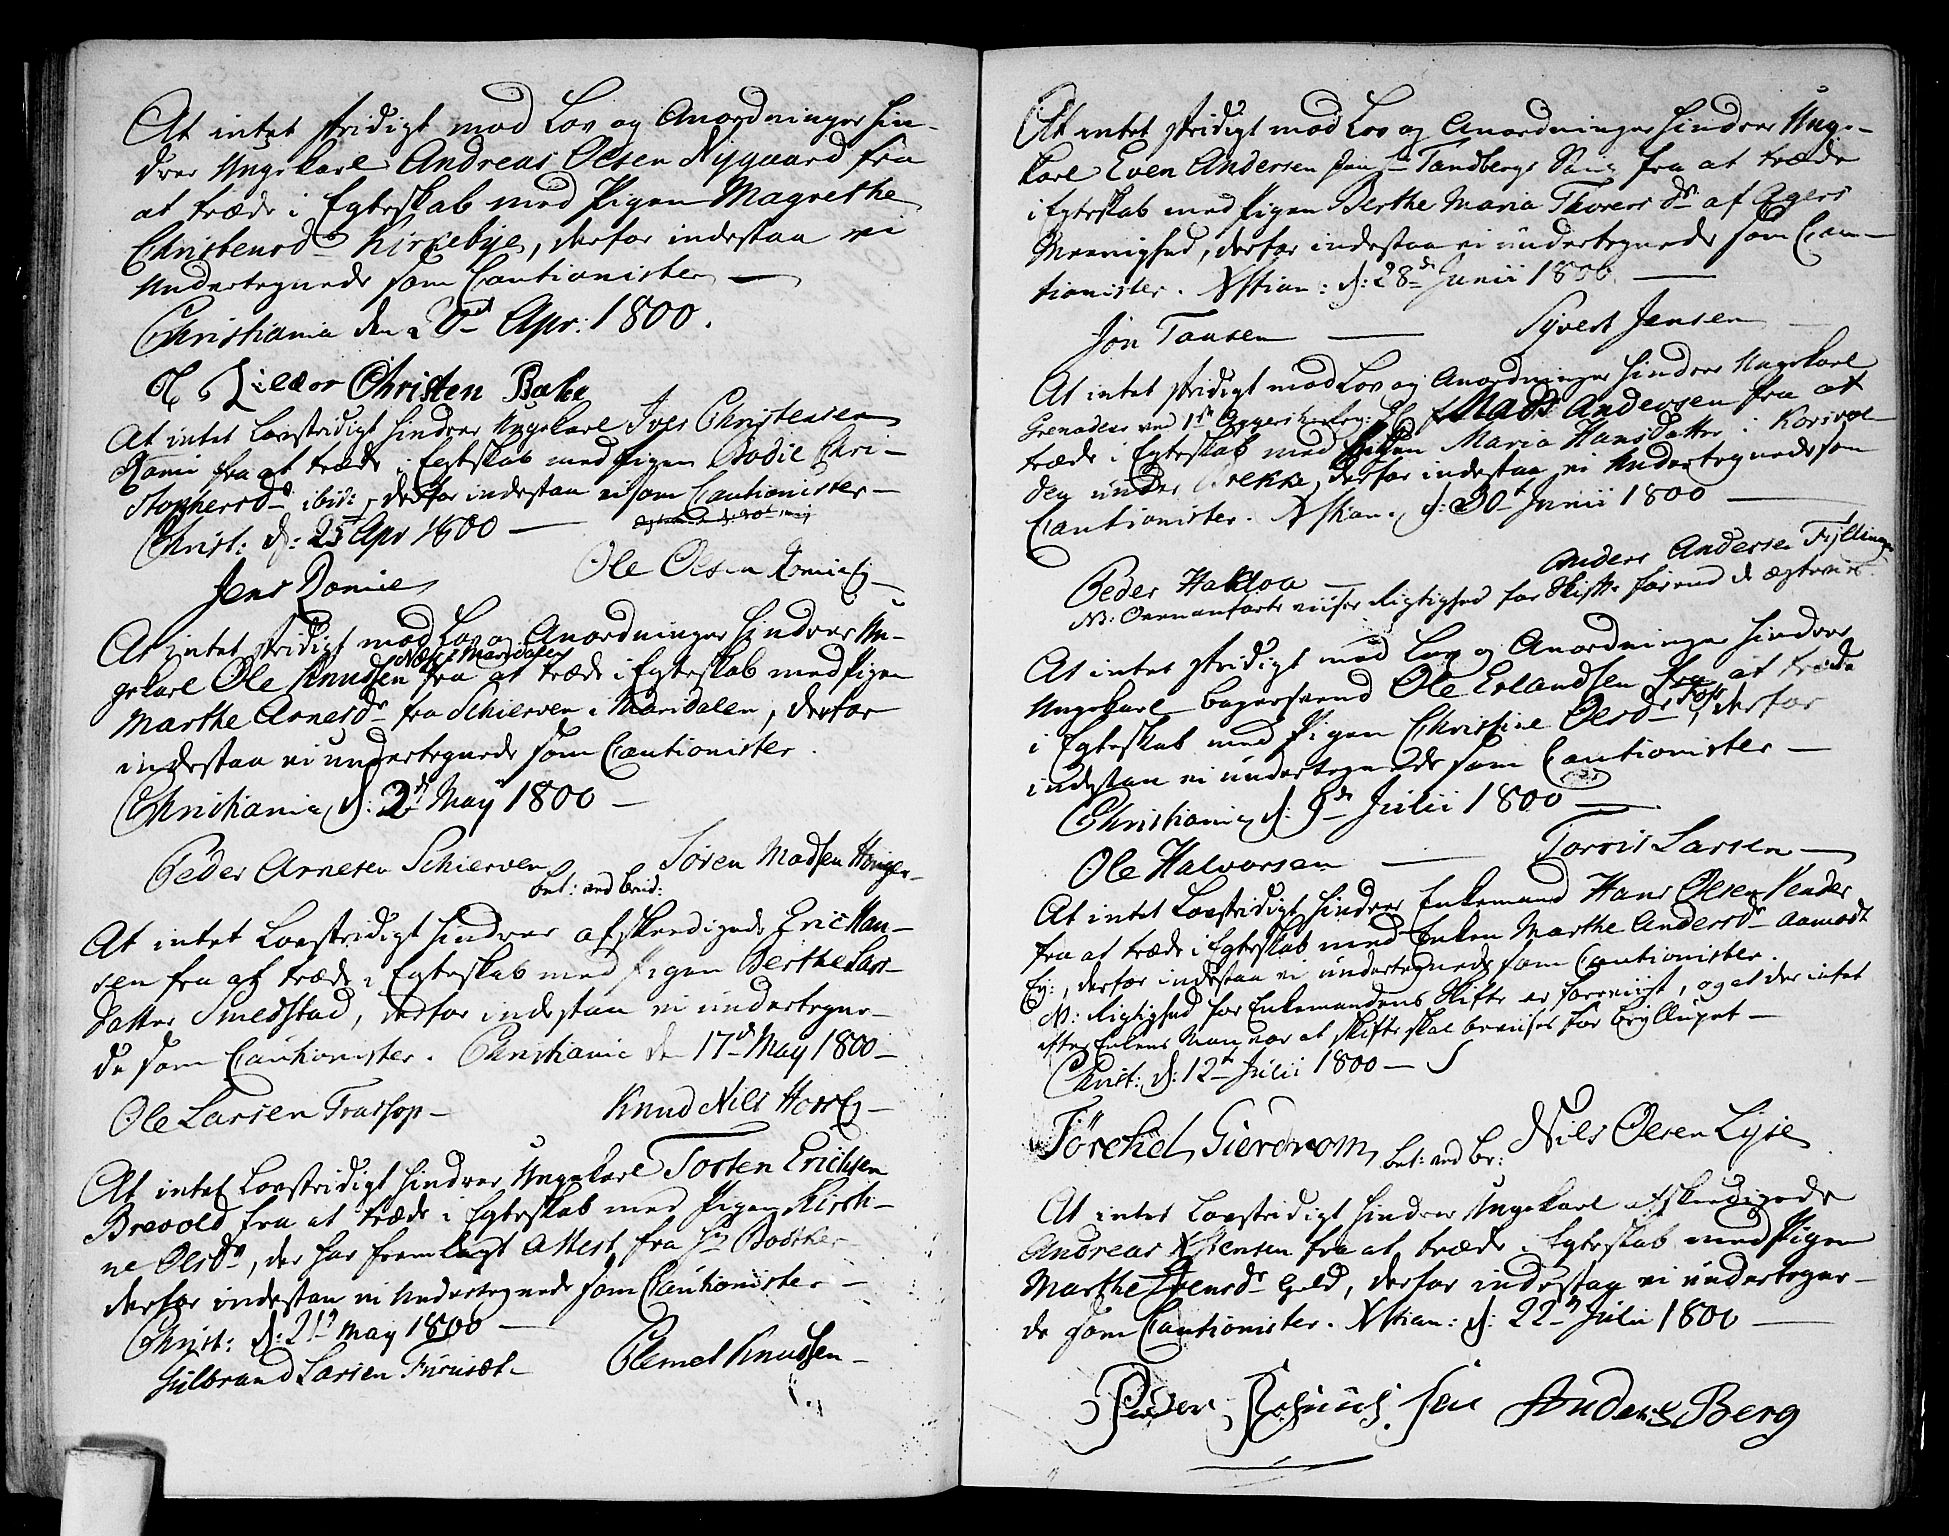 At intet stridigt mod Lov og Anordninger hin-
drer Ungekarl Andreas Olsen Nygaard fra
at træde i Egteskab med Pigen Magrethe
Christensd. Kirkebye, derfor indestaa vi
Undertegnede som Cautionister —
Christiania den Apr: 1800.
Christen Bakke
At intet Lovstridigt hindrer Ungekarl Iver Christensen
fra at træde i Egteskab med Pigen Bodil Chri-
stophersd. ibid:, derfor indestaa vi som Cautionister —
Christ: d: 25 Apr 1800 —
Jens Ole Olsen
At intet stridigt mod Lov og Anordninger hindrer Un-
gekarl Ole Knudsen fra at træde i Egteskab med Pigen
Marthe Arnesdr fra Schierven i Maridalen, derfor
indestaa vi undertegnede som Cautionister.
Christiania d: 2 May 1800 —
Peder Arnesen Schierven Søren Madsen
bet: ved brud:
At intet Lovstridigt hindrer afskeedigede Eric Han-
sen fra at træde i Egteskab med Pigen Berthe Lars-
datter Smedstad, derfor indestaa vi undertegne-
de som Cautionister. Christiania den 17 May 1800 —
Ole Larsen Trassop — Knud Nils
At intet Lovstridigt hindrer Ungekarl Torsten Erichsen
Brevold fra at træde i Egteskab med Pigen Kirsti-
ne Olsdr, der har fremlagt Attest fra Hr Bødtker
derfor indestaa vi Undertegnede som Cautionister —
Christ: d: 21 May 1800 —
Gulbrand Larsen Furuset — Clemet Knudsen —
At intet stridigt mod Lov og Anordninger hindrer Unge-
karl Even Andersen Tandbergs fra at træde
i Egteskab med Pigen Berthe Maria Thoresdr af Agers
Meenighed, derfor indestaa vi undertegnede som Cau-
tionister. Xstian: d: 28de Junii 1800 —
Jon Tansen — Syvert Jensen
At intet stridigt mod Lov og Anordninger hindrer Ungekarl
Grenadeer ved 1ste Mads Andersen fra at
træde i Egteskab med Maria Hansdatter i Korsvol-
den under Brekke, derfor indestaa vi Undertegnede som
Cautionister. Xstian. d: 30 Junii 1800 —
Peder — Anders Andersen Fyllingen
NB: Ovenanførte viiser Rigtighed for Skifte førend de ægtevies.
At intet stridigt mod Lov og Anordninger hindrer
Ungekarl bagersvend Ole Erlandsen fra at træde
i Egteskab med Pigen Christine Olsdr Foss, derfor
indestaa vi undertegnede som Cautionister —
Christiania d: 9de Julii 1800 —
Ole Halvorsen — Torris Larsen —
At intet Lovstridigt hindrer Enkemand Hans Olsen
fra at træde i Egteskab med Enken Marthe Andersdr Aamodt
Ey:, derfor indestaa vi undertegnede som Cautionister.
NB: Rigtighed for Enkemandens Skifte er foreviist, og at der intet
efter Enkens Man var at skifte skal beviises før brylluppet —
Christ: d: 12te Julii 1800 —
Nils Olsen Lyse
bet: ved br:
At intet Lovstridigt hindrer Ungekarl afskeedigede
Andreas Xstensen fra at træde i Egteskab med Pigen
Marthe Svensdr derfor indestaa vi undertegne-
de som Cautionister. Xstian: d: 22 Julii 1800 —
Peder Anders Berg